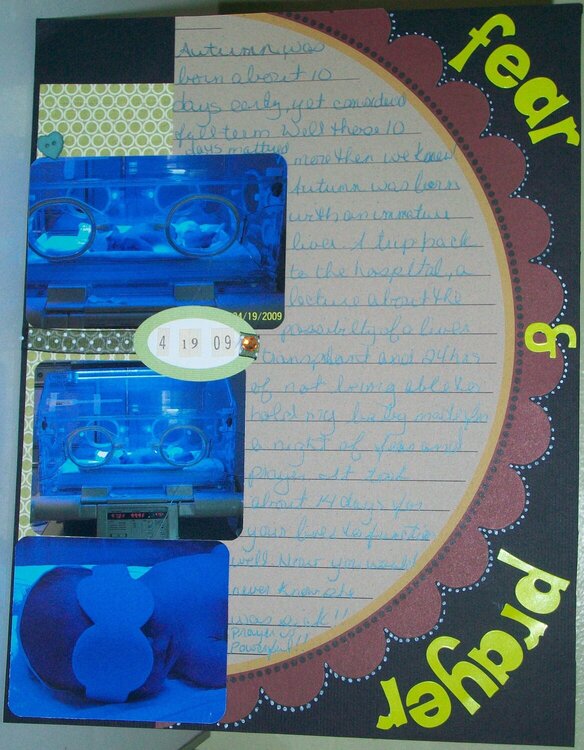 fear
&
prayer
Autumn was
born about 10
days early, yet considered
full term. Well those 10
days mattred
more then we knew
Autumn was born
with an immature
liver. A trip back
to the hospital, a
lecture about the
possibilty of a liver
transplant and 24 hrs
of not being able to
hold my baby made for
a night of fear and
prayer. It took
about 14 days for
your liver to function
well. Now you would
never know she
was sick!!
Prayer is
Powerful!!
04/19/2009
4 19 09